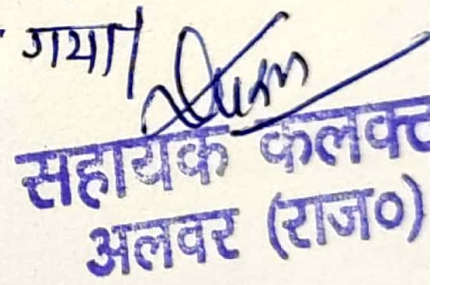 गया।
सहायक कलक्ट
अलवर (राज०)